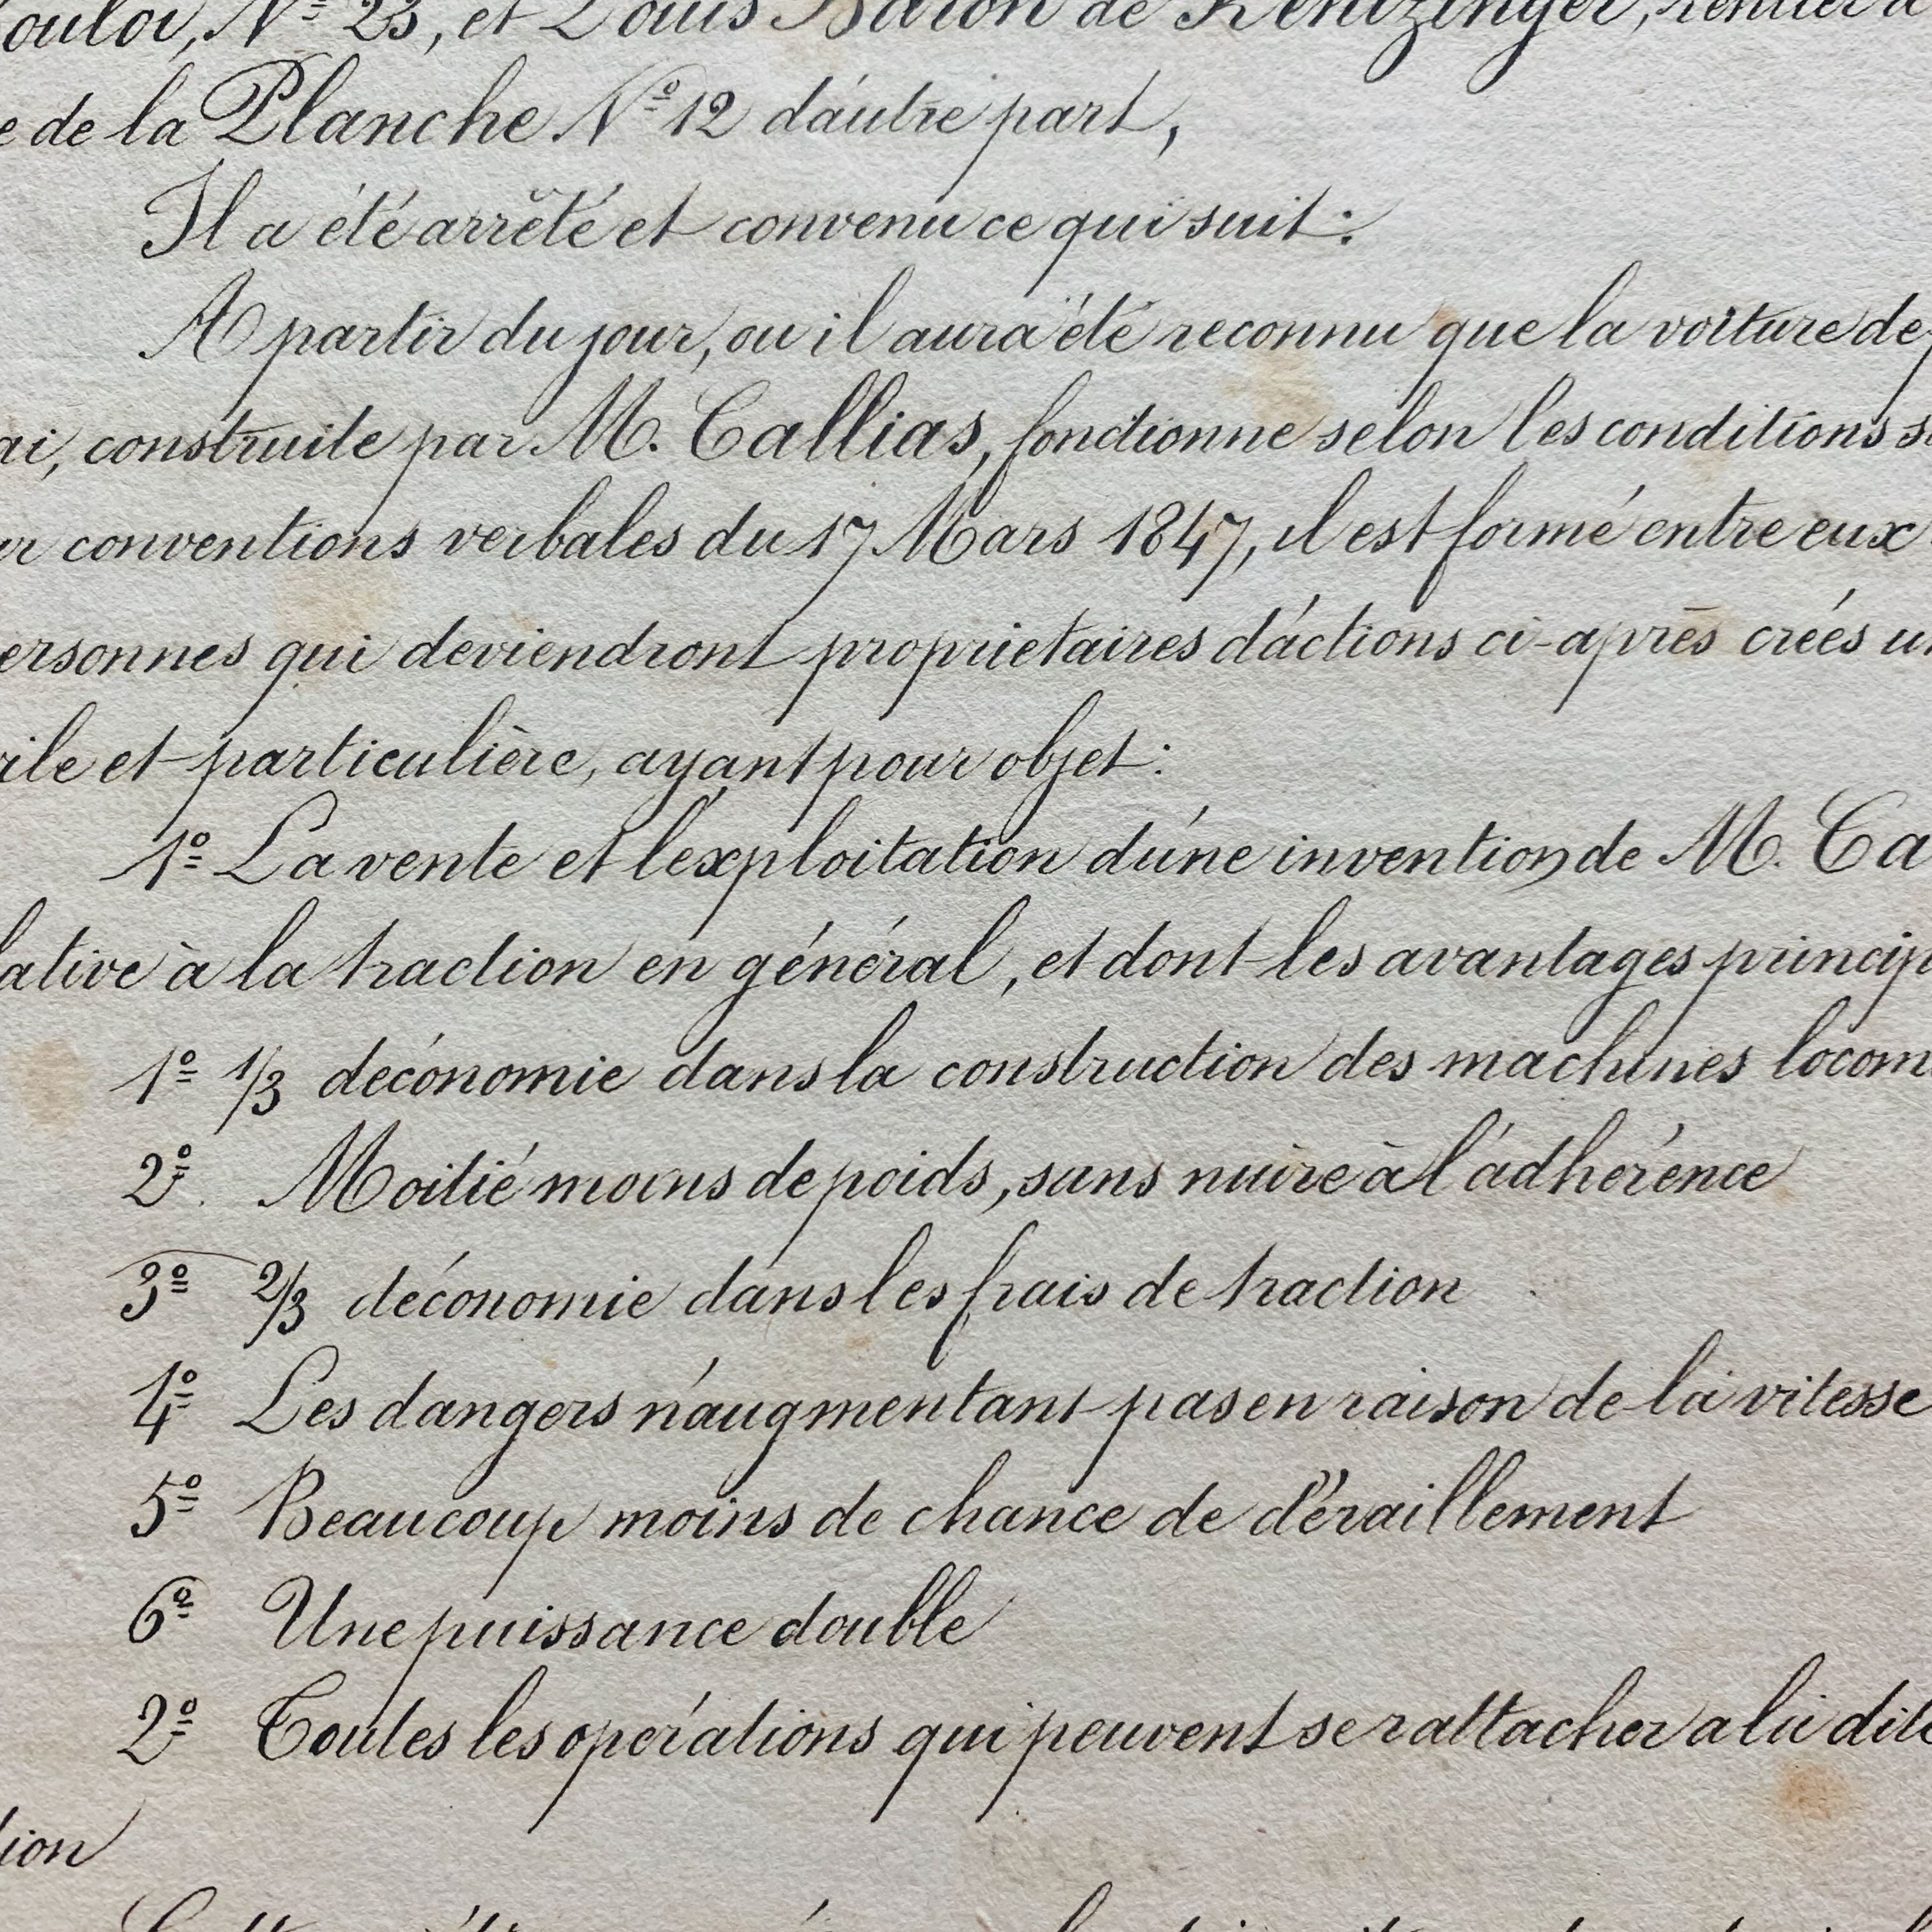 ouloi, Nº 23, et Louis Baron de Kentzinger, rentier à
e de la Planche Nº 12 d'autre part,
Il a été arrêté et convenu ce qui suit:
A partir du jour, ou il aura été reconnu que la voiture de
ai, construite par M. Callias, fonctionne selon les conditions
ur conventions verbales du 17 Mars 1847, il est formé entre eux
ersonnes qui deviendront proprietaires d'actions ci-après créés un
ile et particulière, ayant pour objet:
1º La vente et l'exploitation d'une invention de M. Ca
lative à la traction en général, et dont les avantages princip
1º 1/3 d'économie dans la construction des machines locom
2º. Moitié moins de poids, sans nuire à l'adhérence
3º 2/3 d'économie dans les frais de traction
4º Les dangers n'augmentant pas en raison de la vitesse
5º Beaucoup moins de chance de déraillement
6º Une puissance double
2º Toutes les opérations qui peuvent se rattacher a la dite
tion